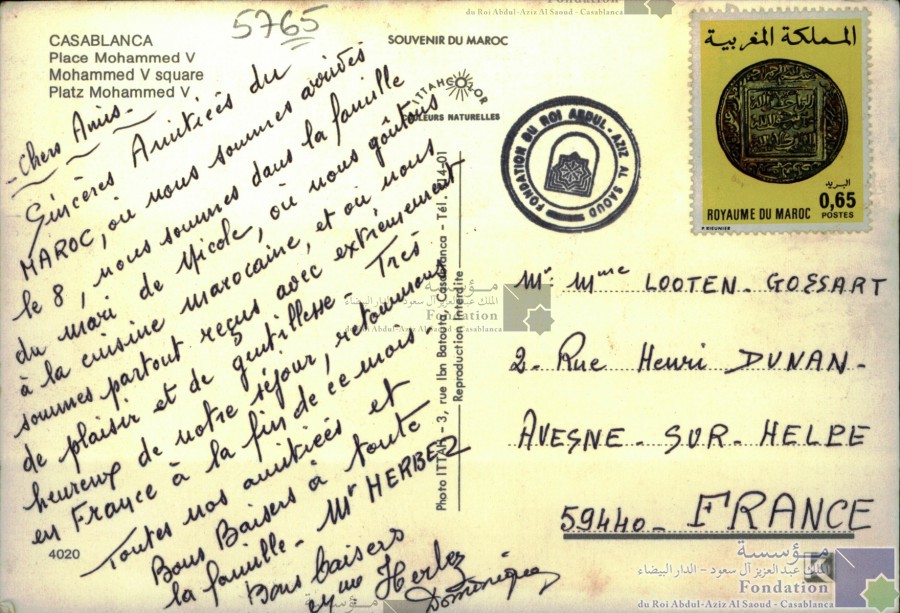 5765
CASABLANCA
Place Mohammed V
Mohammed V square
Platz Mohammed V
SOUVENIR DU MAROC
ITTAHCOLOR
COULEURS NATURELLES
- Chers Amis -
Sincères Amitiées du
MAROC, où nous sommes arrivés
le 8, nous sommes dans la famille
du mari de Nicole, où nous goûtons
à la cuisine marocaine, et où nous
sommes partout reçus avec extrêmement
de plaisir et de gentillesse - Très
heureux de notre séjour, retournons
en France à la fin de ce mois.
Toutes nos amitiées et
Bons Baisers à toute
la famille - Mr HERBEZ
Bons baisers
Herbez
Dominique
4020
Photo ITTAH - 3, rue Ibn Batouta, Casablanca - Tél.
Reproduction Interdite
FONDATION DU ROI ABDUL-AZIZ AL SAOUD
المملكة المغربية
البريد
0,65
POSTES
ROYAUME DU MAROC
Mr Mme LOOTEN - GOSSART
2 - Rue Henri DUNAN -
AVESNE - SUR - HELPE
59440 - FRANCE
مؤسسة
الملك عبد العزيز آل سعود - الدار البيضاء
Fondation
du Roi Abdul-Aziz Al Saoud - Casablanca